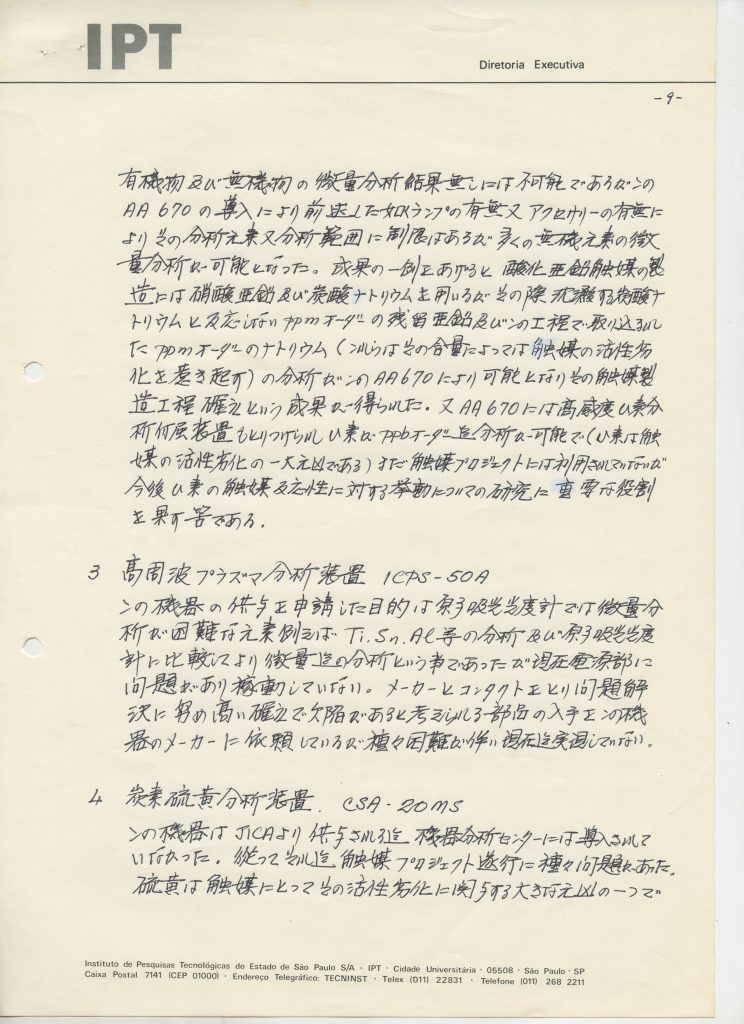 IPT
Diretoria Executiva
-9-
有機物及び無機物の微量分析結果無しには不可能であるがこの
AA 670の導入により前述した如くランプの有無又アクセサリーの有無に
よりその分析元素又分析範囲に制限はあるが多くの無機元素の微
量分析が可能となった。成果の一例をあげると酸化亜鉛触媒の製
造には硝酸亜鉛及び炭酸ナトリウムを用いるがその際沈澱する炭酸ナ
トリウムと反応しないppmオーダーの残留亜鉛及びこの工程で取り込まれ
たppmオーダーのナトリウム(これらはその含量によっては触媒の活性劣
化を惹き起す)の分析がこのAA670により可能となりその触媒製
造工程確立という成果が得られた。又AA670には高感度ひ素分
析付属装置もとりつけられひ素がppbオーダー迄分析が可能で(ひ素は触
媒の活性劣化の一大元凶である)まだ触媒プロジェクトには利用されていないが
今後ひ素の触媒反応性に対する挙動についての研究に重要な役割
を果す筈である.
3 高周波プラズマ分析装置 ICPS-50A
この機器の供与を申請した目的は原子吸光光度計では微量分
析が困難な元素例えば Ti. Sn. Al等の分析及び原子吸光光度
計に比較してより微量迄の分析という事であったが現在電源部に
問題があり稼動していない。メーカーとコンタクトをとり問題解
決に努め高い確立で欠陥があると考えられる部品の入手をこの機
器のメーカーに依頼しているが種々困難が伴い現在迄実現していない。
4 炭素硫黄分析装置. CSA-20MS
この機器はJICAより供与される迄機器分析センターには導入されて
いなかった. 従ってそれ迄触媒プロジェクト遂行に種々問題があった.
硫黄は触媒にとってその活性劣化に関与する大きな元凶の一つで
Instituto de Pesquisas Tecnológicas do Estado de São Paulo S/A · IPT · Cidade Universitária · 05508 · São Paulo · SP
Caixa Postal 7141 (CEP 01000) · Endereço Telegráfico: TECNINST · Telex (011) 22831 · Telefone (011) 268 2211